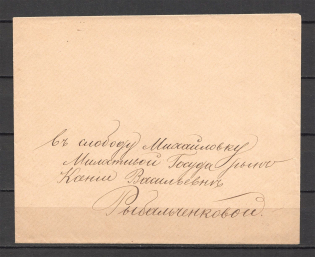 въ слободу Михайловку
Милостивой Госуда рынѣ
Васильевнѣ
Рыбальченковой.